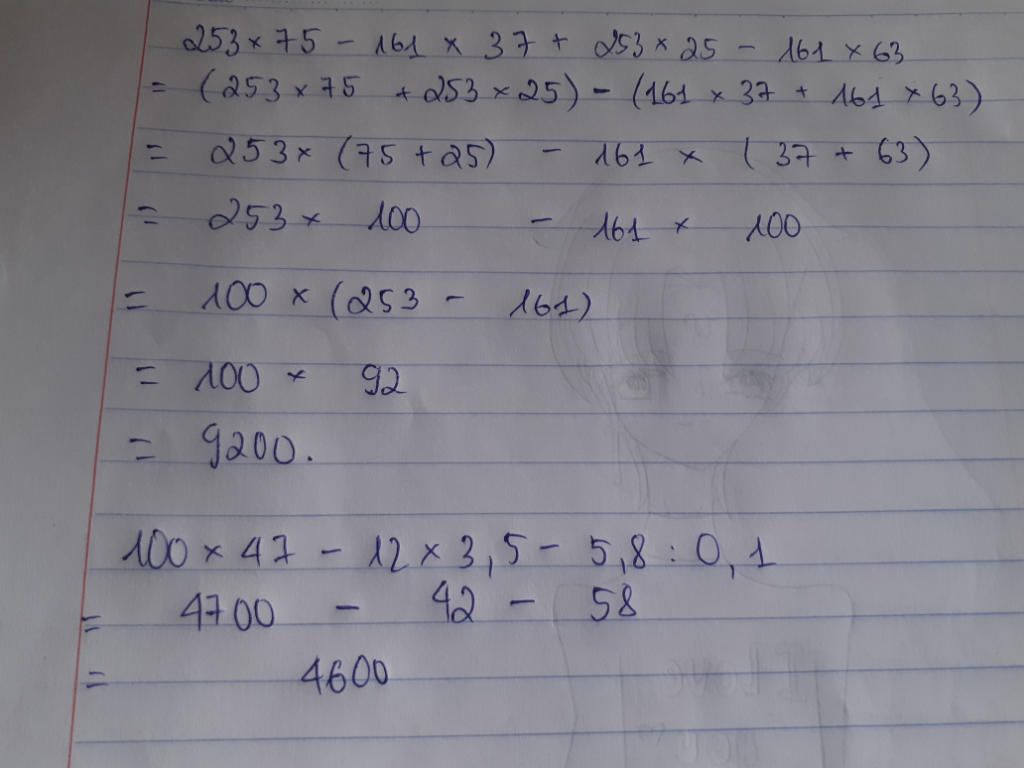 253 × 75 - 161 × 37 + 253 × 25 - 161 × 63
= (253 × 75 + 253 × 25) - (161 × 37 + 161 × 63)
= 253 × (75 + 25) - 161 × (37 + 63)
= 253 × 100 - 161 × 100
= 100 × (253 - 161)
= 100 × 92
= 9200.
100 × 47 - 12 × 3,5 - 5,8 : 0,1
= 4700 - 42 - 58
= 4600